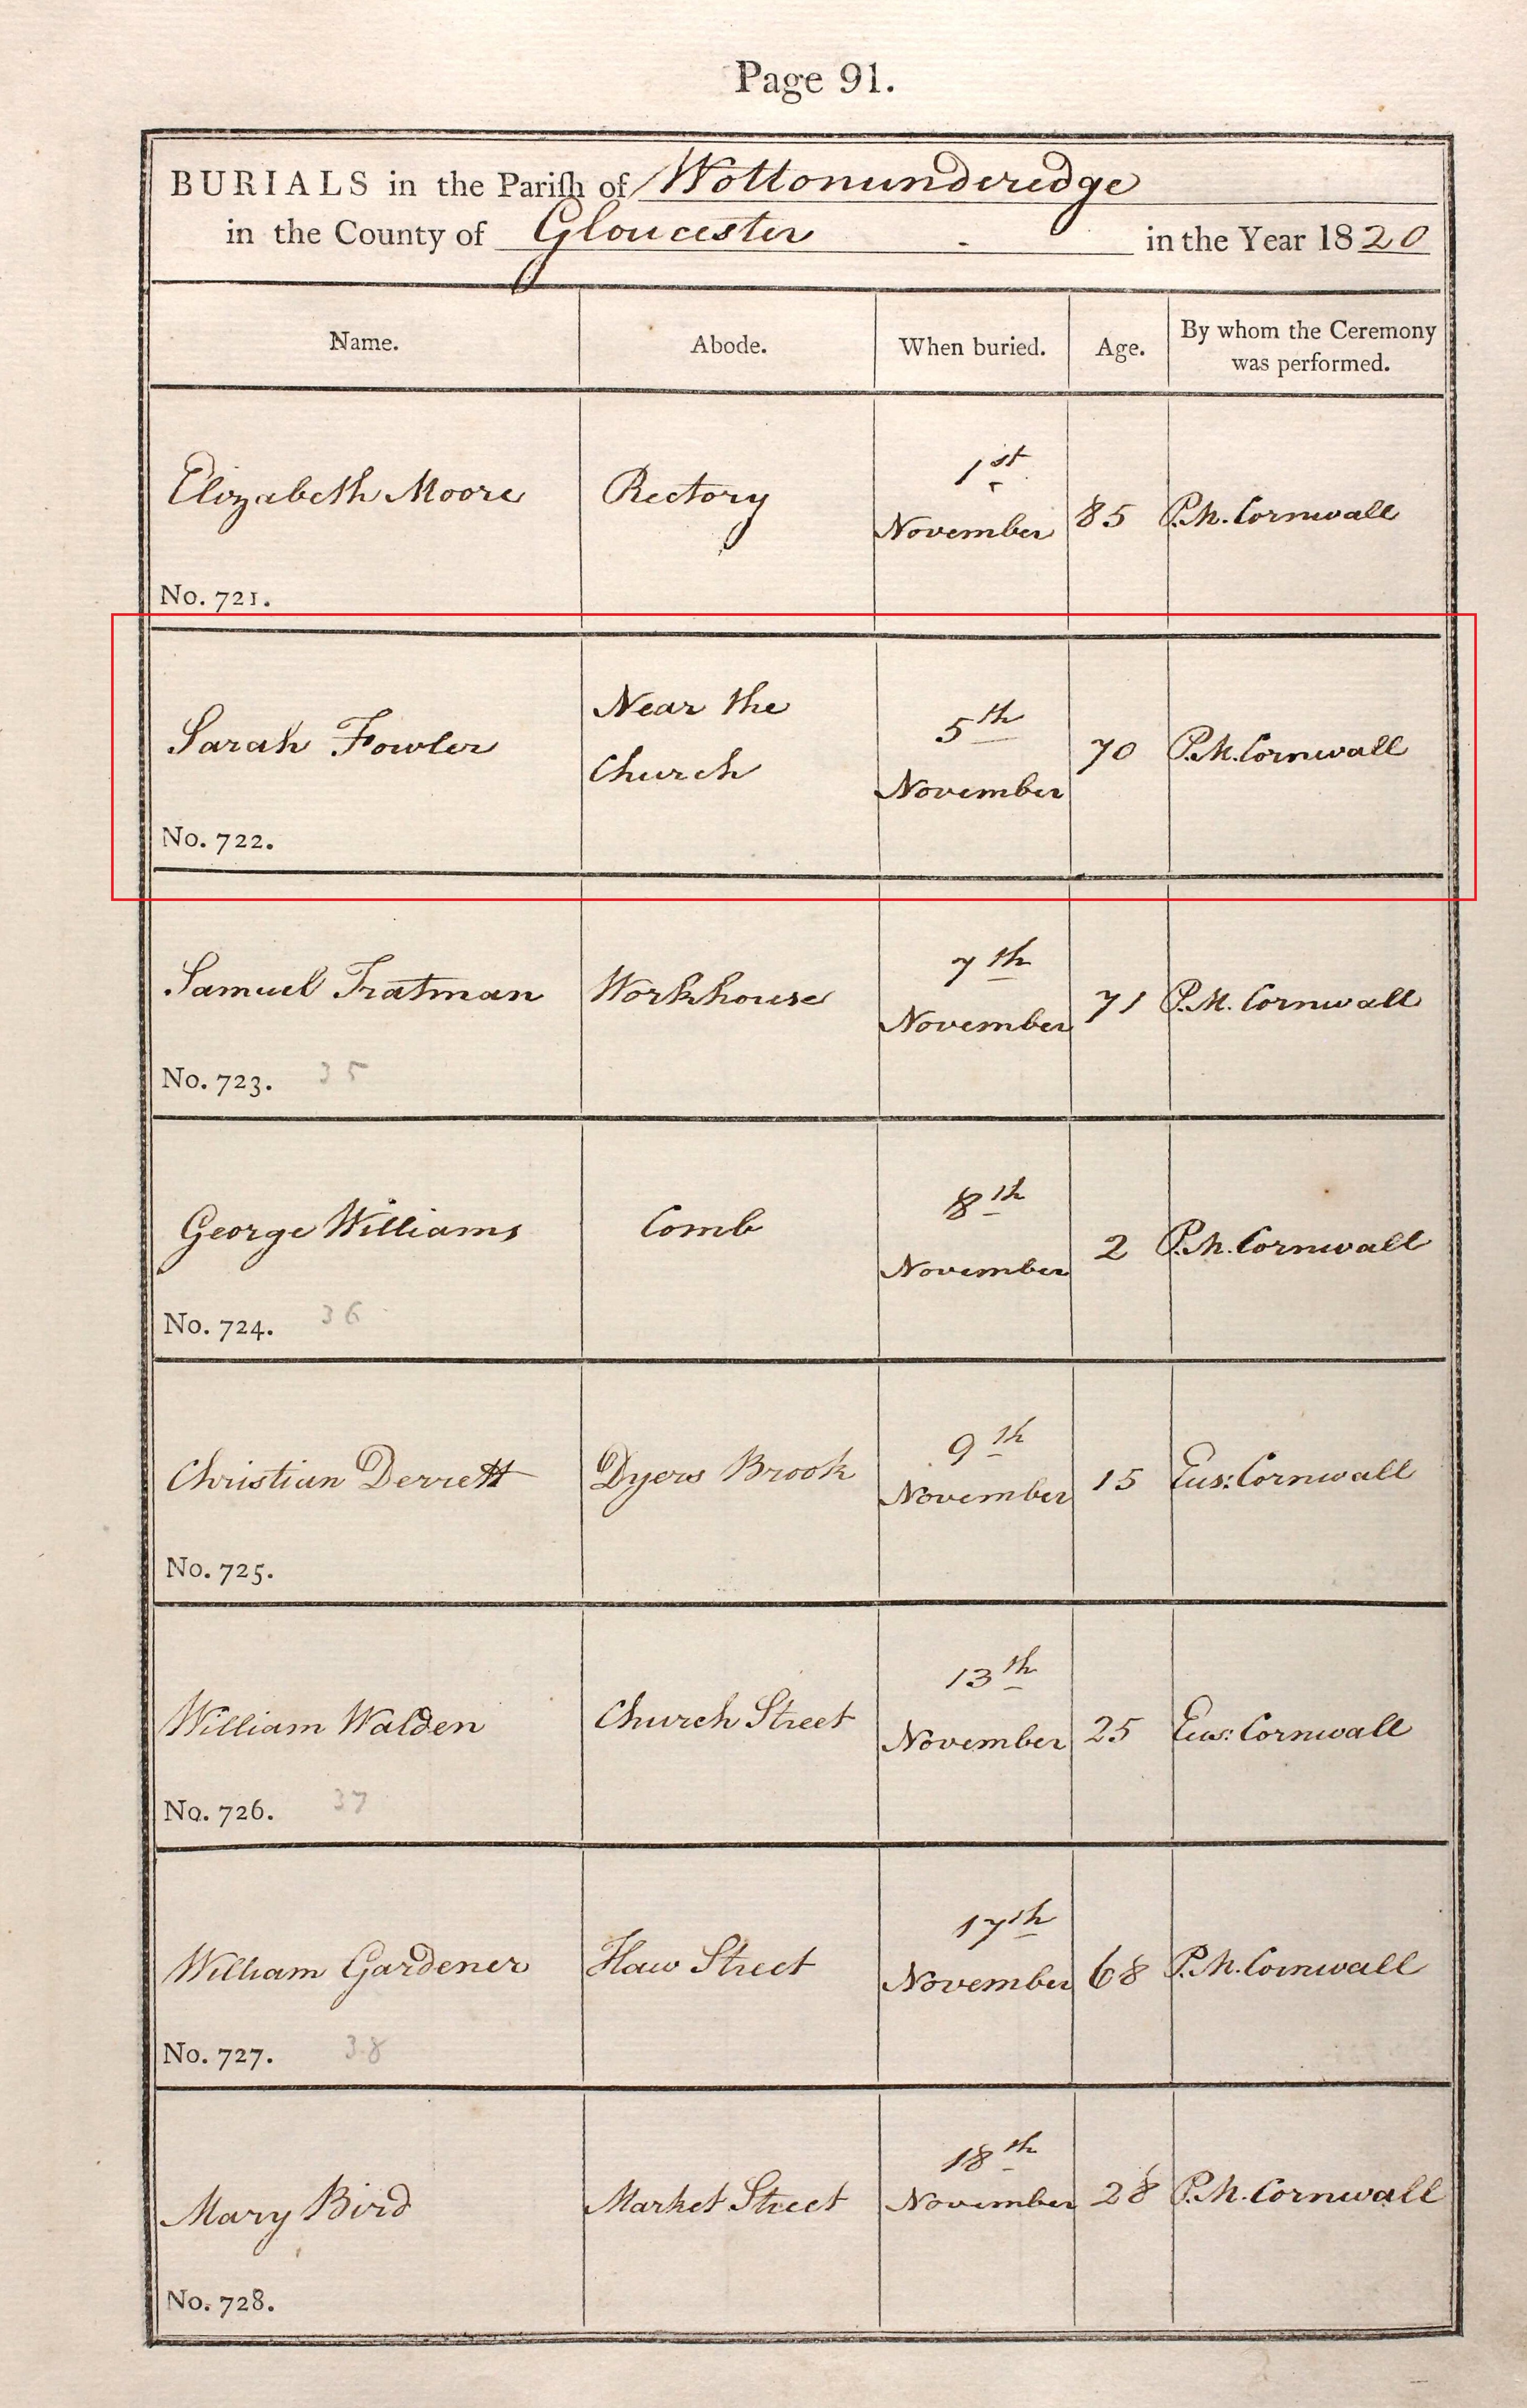 Page 91.
BURIALS in the Pariſh of Wottonunderedge
in the County of Gloucester - in the Year 1820
Name. Abode. When buried. Age. By whom the Ceremony
was performed.
Elizabeth Moore Rectory 1st
November 85 P.M. Cornwall
No. 721.
Sarah Fowler Near the
Church 5th
November 70 P.M. Cornwall
No. 722.
Samuel Tratman Workhouse 7th
November 71 P.M. Cornwall
No. 723. 35
George Williams Comb 8th
November 2 P.M. Cornwall
No. 724. 36
Christian Derrett Dyers Brook 9th
November 15 Eus: Cornwall
No. 725.
William Walden Church Street 13th
November 25 Eus: Cornwall
No. 726. 37
William Gardener Haw Street 17th
November 68 P.M. Cornwall
No. 727. 38
Mary Bird Market Street 18th
November 28 P.M. Cornwall
No. 728.